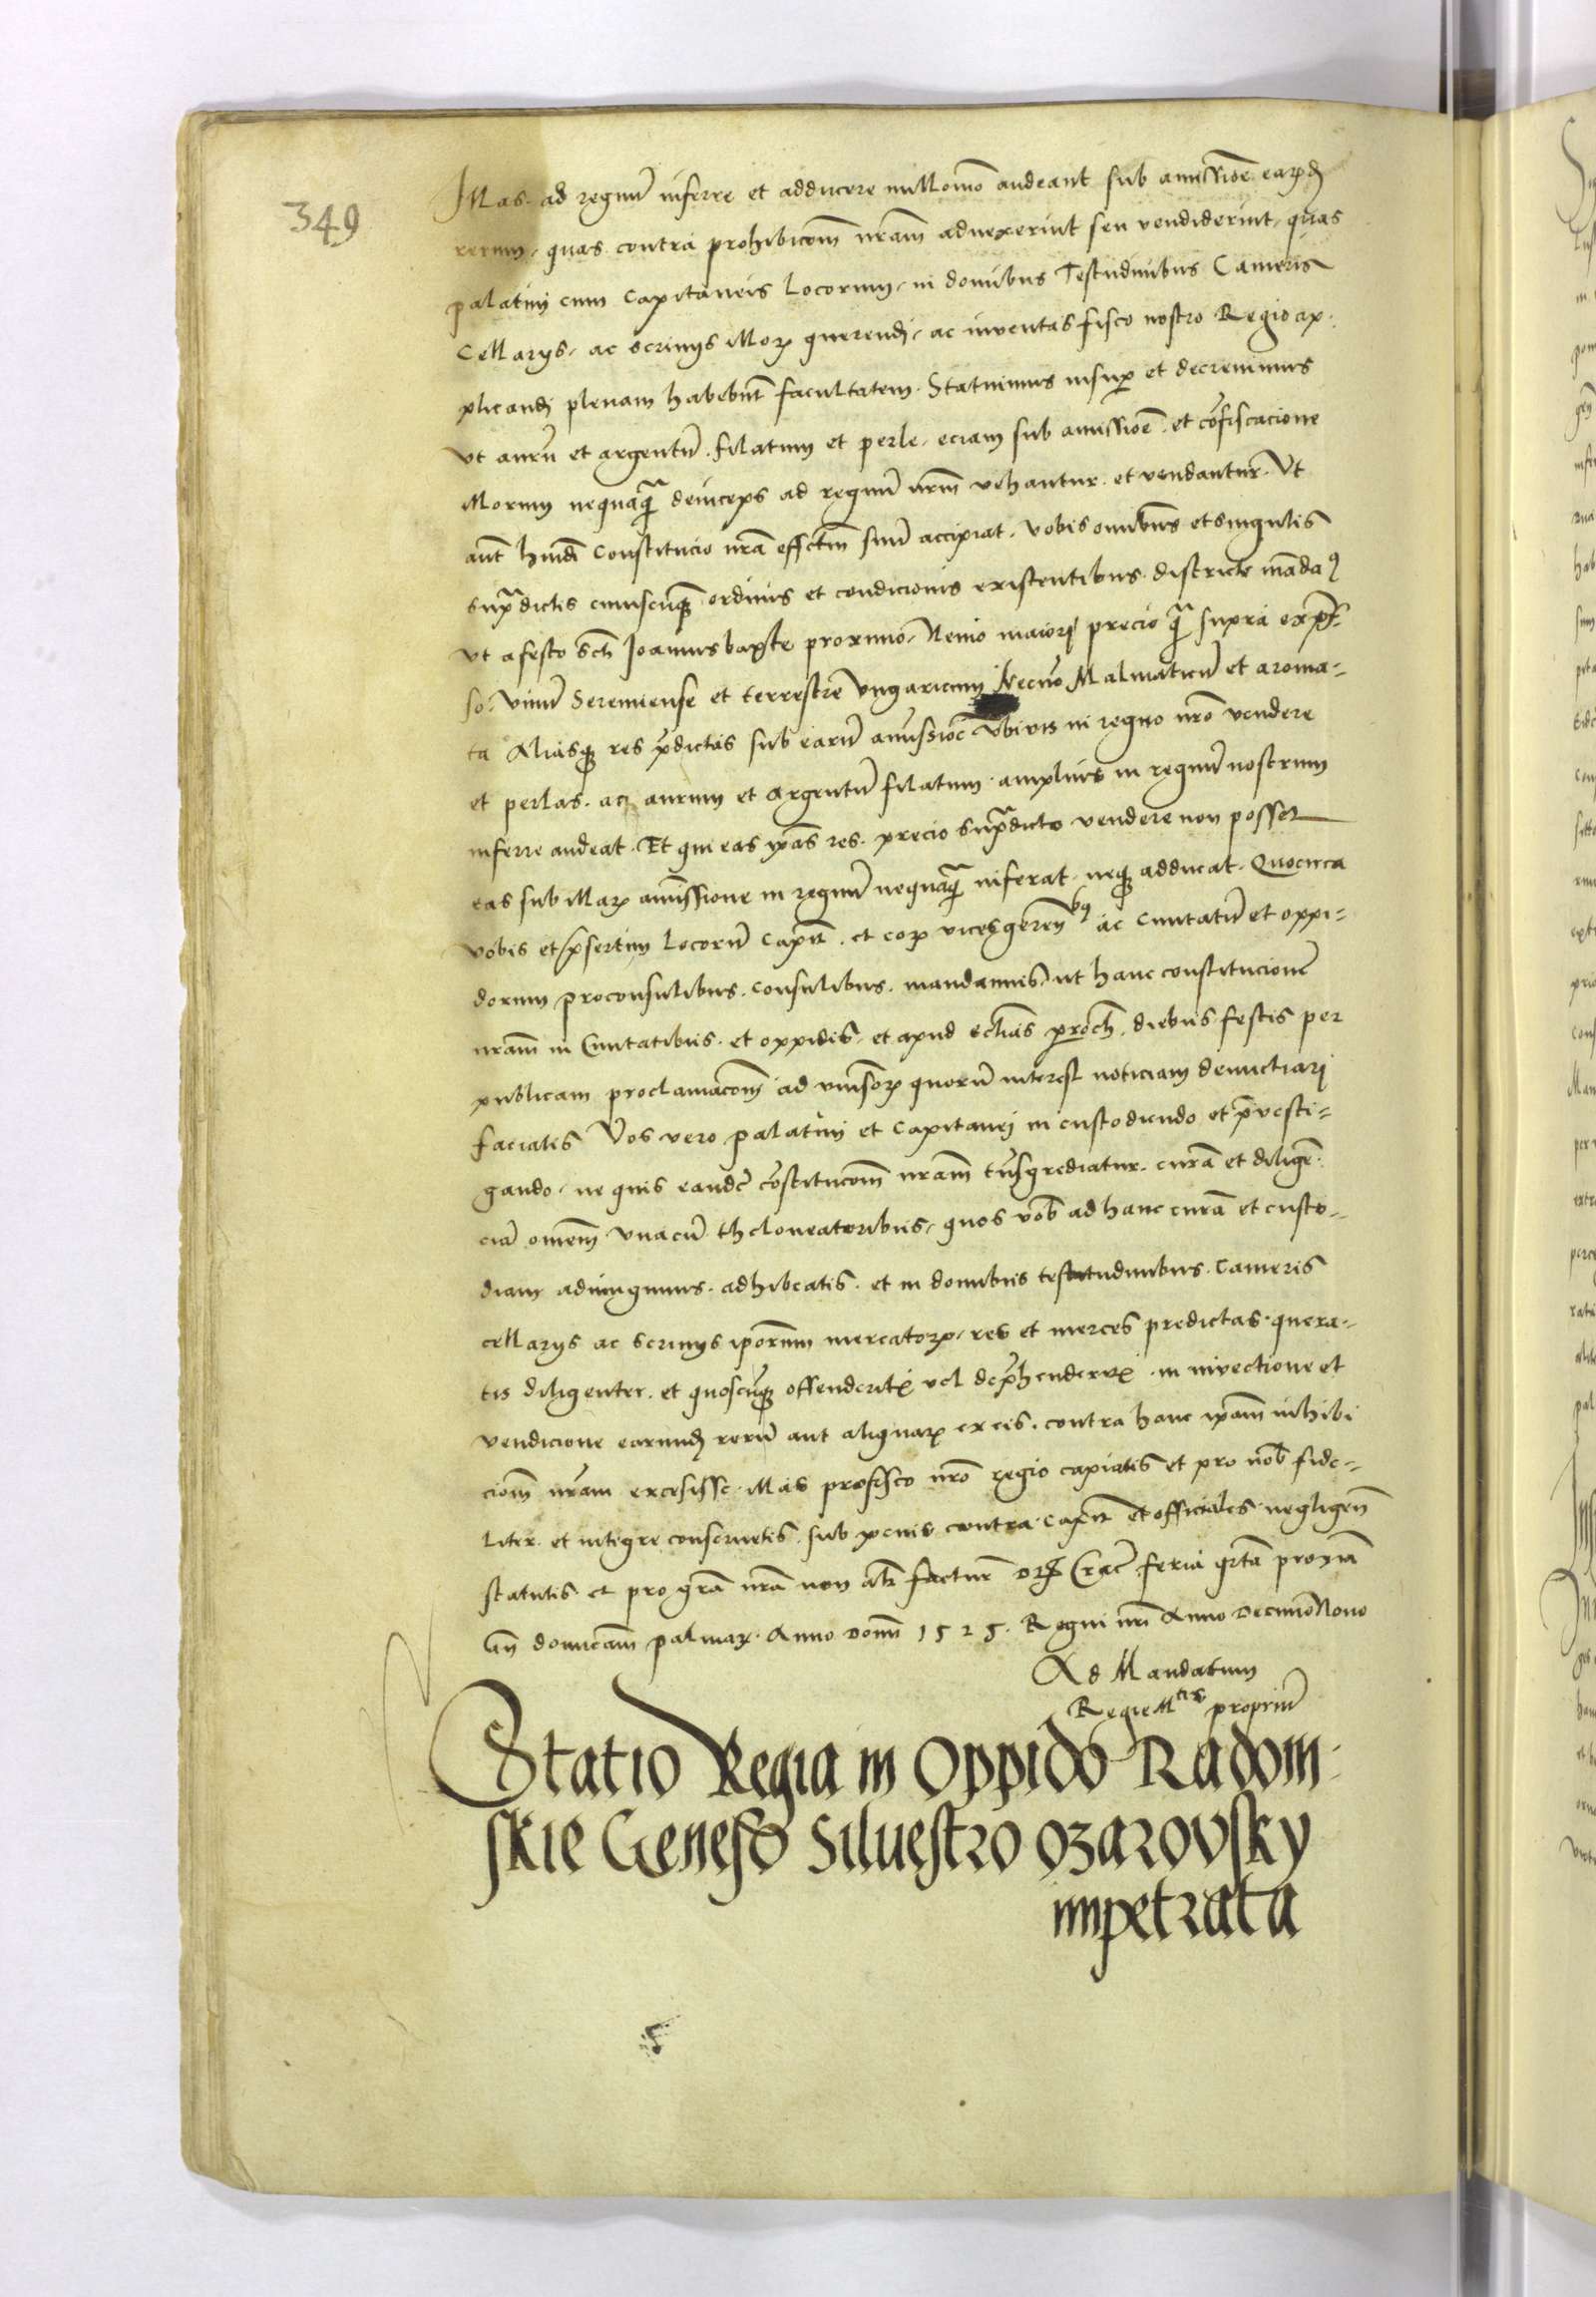 349
Illas ad regnũ inferre et adducere nullomõ audeant sub amissiõe earũd
rerum, quas contra prohibicõm nr̃am aduexerint seu vendiderint, quas
palatini cum Capitaneis Locorum, in domibus Testudinibus Cameris
Cellarys, ac scrinys illoꝝ querendi, ac inventas fisco nostro Regio ap-
plicandi plenam habebũt facultatem. Statuimus insuꝑ et decrevimus
ut aurũ et argentũ filatum et perle, eciam sub amissiõe et cõfiscacione
illorum nequaq̃ deinceps ad regnũ nr̃m vehantur et vendantur. Ut
aũt hmõi Constitucio nr̃a effctm̃ suũ accipiat, vobis omibus et singulis
sup̃dictis cuiuscũqꝫ ordinis et condicionis existentibus districte mãdaꝯ
ut a festo scti Joannis bapte proximo, Nemo maiori precio q̃ supra exp̃s-
so, vinũ Seremiense et terrestre Ungaricum Necnõ Malmaticũ et aroma-
ta Aliasqꝫ res p̃dictas sub earũ amissiõe ubivis in regno nr̃o vendere
et perlas ac aurum et Argentũ filatum amplius in regnũ nostrum
inferre audeat. Et qui eas ip̃as res precio sup̃dicto vendere non posset
eas sub illaꝝ amissione in regnũ nequaq̃ inferat neqꝫ adducat. Quocirca
vobis et p̃sertim Locorũ Capit. et eoꝝ vicesgerenbꝯ ac Civitatũ et oppi-
dorum proconsulibus, consulibus, mandamus, ut hanc constitucionẽ
nr̃am in Civitatibus et oppidis, et apud ecl̃ias paroch. diebus festis per
publicam proclamacõm ad uniṽsoꝝ quorũ interest noticiam denunctiari
faciatis. Vos vero palatini et Capitanei in custodiendo et p̃vesti-
gando, ne quis eandẽ cõstitucõm nr̃am trãsgrediatur, curã et diligẽ-
ciã om̃em unacũ theloneatoribus, quos vob̃ ad hanc curã et custo-
diam adiungimus, adhibeatis, et in domibus testudinibus, Cameris
cellarys ac scrinys ip̃orum mercatoꝝ, res et merces predictas quera-
tis diligenter, et quoscũqꝫ offenderitis vel dep̃henderitis in invectione et
vendicione earundẽ rerũ aut aliquaꝝ ex eis, contra hanc ip̃am inhibi
ciom̃ nr̃am excesisse, illas pro fisco nr̃o regio capiatis et pro nob̃ fide-
liter et integre conservetis, sub penis contra Capit. et officiales negligen̄
statutis et pro gr̃a nr̃a non alr̃ factur̃ Dat Crac̃ feria qrta proxĩa
an̄ domicam̃ palmaꝝ Anno Domĩ 1525. Regni nr̃i Anno Decimo Nono
Ad Mandatum
Regie Mtis propriũ
Statio Regia in Oppido Radom-
skie Geneso Siluestro Ozarovsky
impetrata